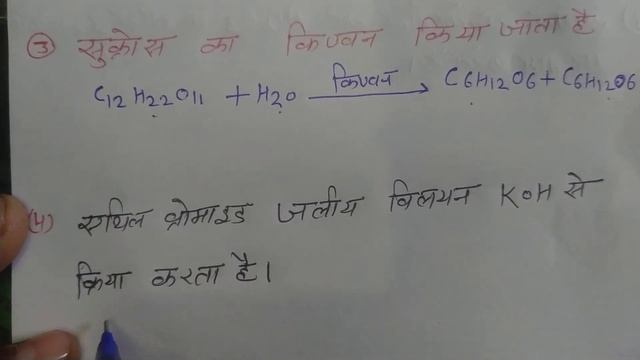 ③ सुक्रोस का किण्वन किया जाता है
C12H22O11 + H2O किण्वन → C6H12O6 + C6H12O6
(4) एथिल ब्रोमाइड जलीय विलयन KOH से
क्रिया करता है।